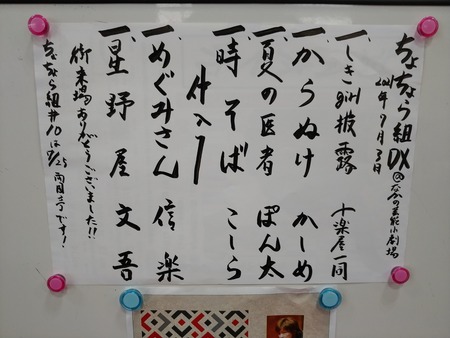 ちょちょら組DX@なかの芸能小劇場
2021年9月
一、しき 披露 楽屋一同
一、からぬけ かしめ
一、夏の医者 ぽん太
一、時そば こしら
仲入り
一、めぐみさん 信楽
一、星野屋 文吾
御来場ありがとうございました!!
ちょちょら組#10は です!